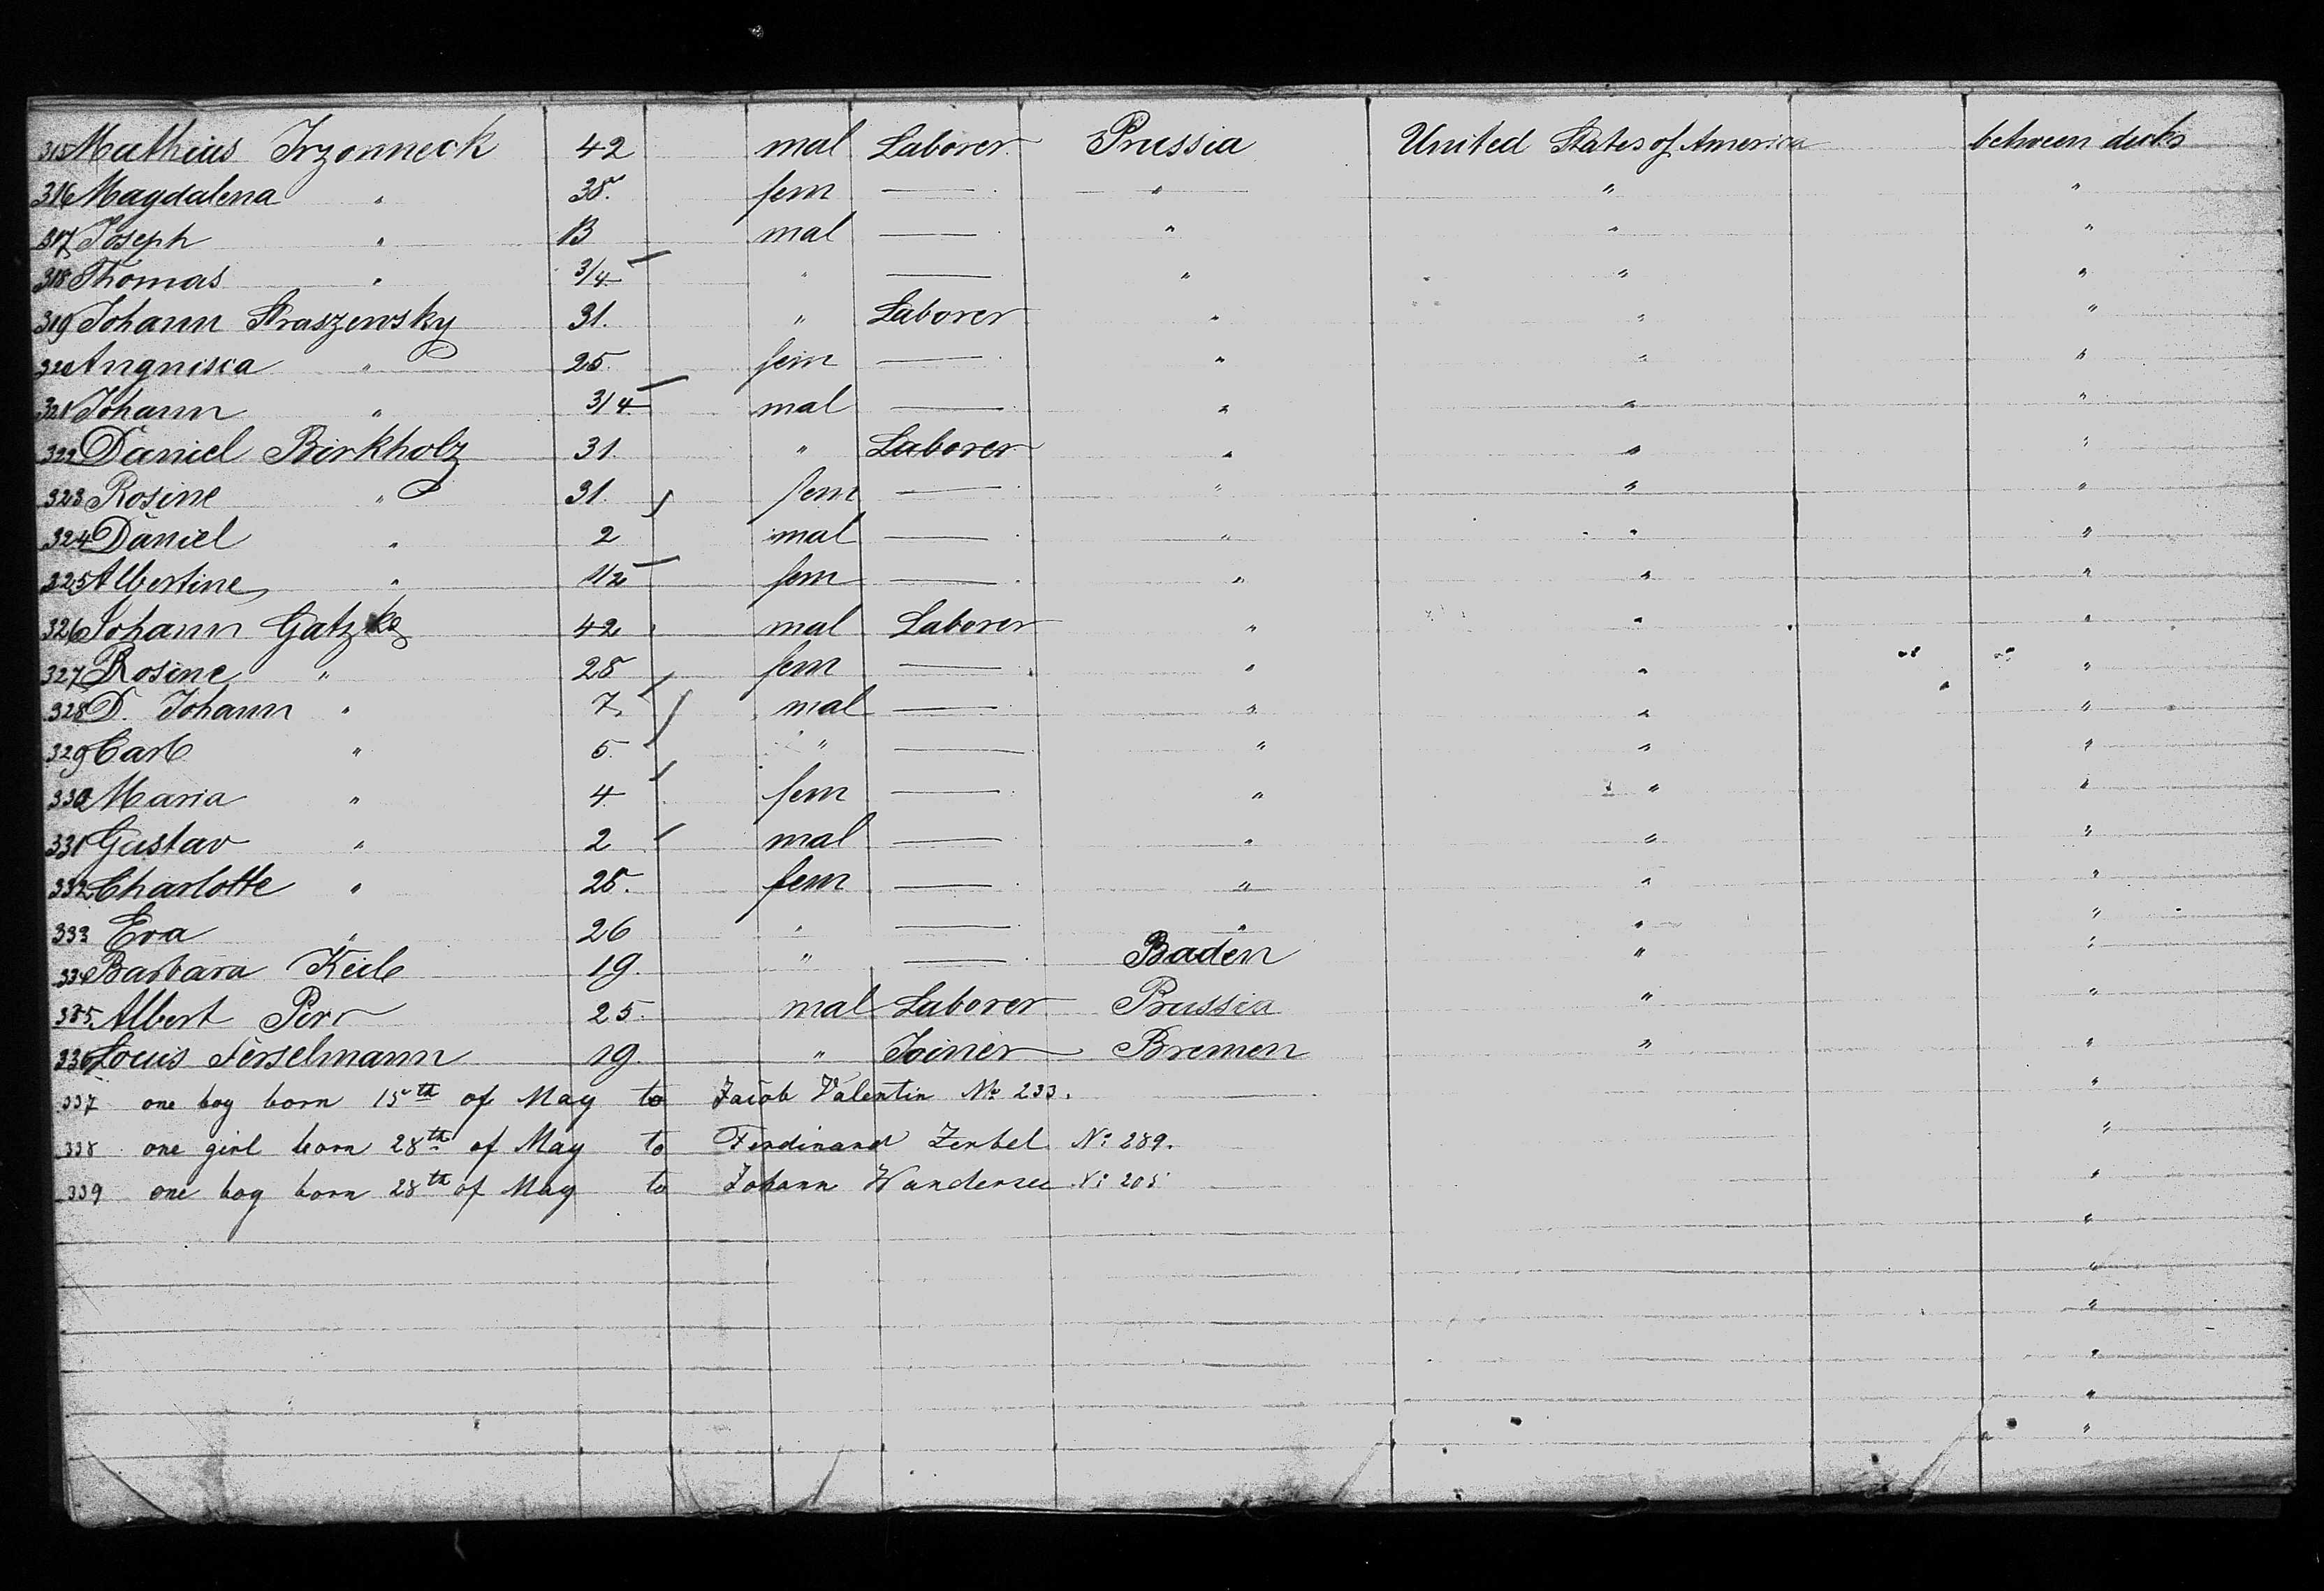 315 Mathias Trzonneck 42 mal Laborer Prussia United States of America between decks
316 Magdalena " 38. fem — " " "
317 Joseph " 13 mal — " " "
318 Thomas " 3/4 " — " " "
319 Johann Straszewsky 31. " Laborer " " "
320 Angnisca " 25. fem — " " "
321 Johann " 3/4 mal — " " "
322 Daniel Birkholz 31. " Laborer " " "
323 Rosine " 31. fem — " " "
324 Daniel " 2 mal — " " "
325 Albertine " 1/2 fem — " " "
326 Johann Gatzke 42 mal Laborer " " "
327 Rosine " 28 fem — " " "
328 D. Johann " 7. mal — " " "
329 Carl " 5. " — " " "
330 Maria " 4 fem — " " "
331 Gustav " 2 mal — " " "
332 Charlotte " 25. fem — " " "
333 Eva " 26 " — " " "
334 Barbara Keil 19. " — Baden " "
335 Albert 25. mal Laborer Prussia " "
336 Louis 19. " Joiner Bremen " "
337 one boy born 15th of May to Jacob Valentin No 233. "
338 one girl born 28th of May to Ferdinand Zerbel No 289. "
339 one boy born 28th of May to Johann Wandersee No 205 "
"
"
"
"
"
"